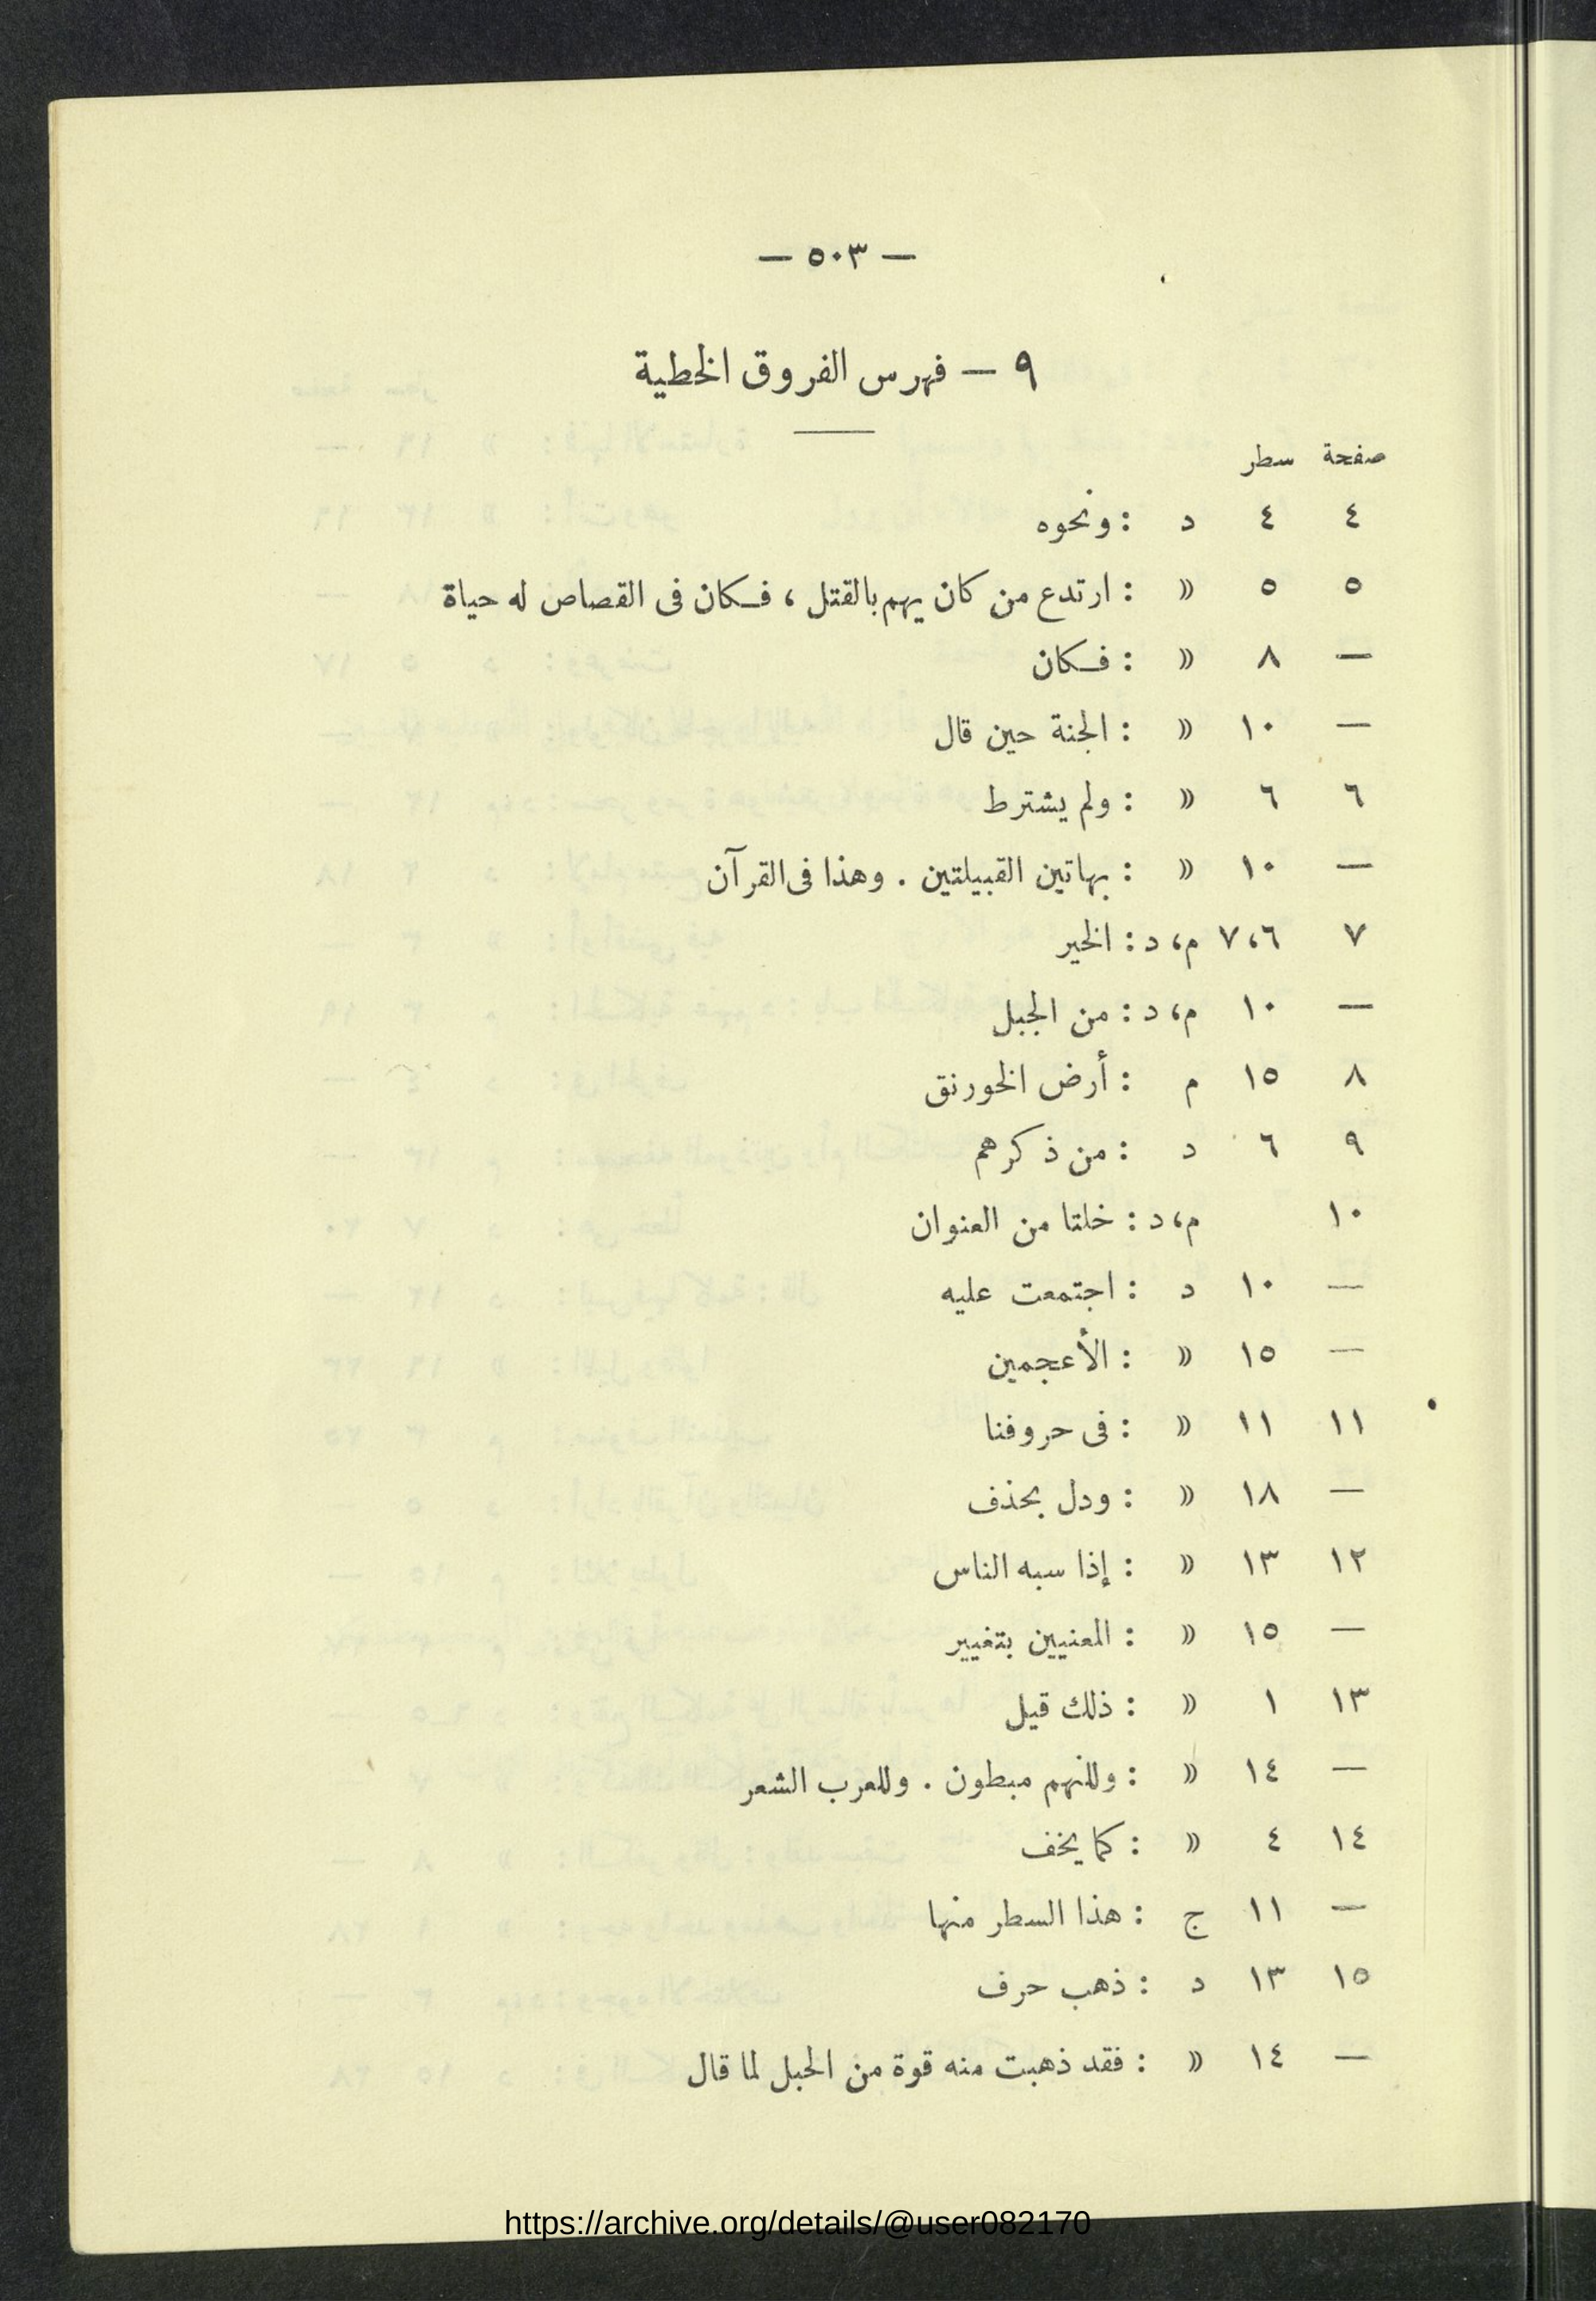 — ٥٠٣ —
٩ — فهرس الفروق الخطية
صفحة سطر
٤ ٤ د : ونحوه
٥ ٥ » : ارتدع من كان يهم بالقتل ، فكان فى القصاص له حياة
— ٨ » : فكان
— ١٠ » : الجنة حين قال
٦ ٦ » : ولم يشترط
— ١٠ » : بهاتين القبيلتين . وهذا فى القرآن
٧ ٦، ٧ م، د : الخير
— ١٠ م، د : من الجبل
٨ ١٥ م : أرض الخورنق
٩ ٦ د : من ذكرهم
١٠ م، د : خلتا من العنوان
— ١٠ د : اجتمعت عليه
— ١٥ » : الأعجمين
١١ ١١ » : فى حروفنا
— ١٨ » : ودل بحذف
١٢ ١٣ » : إذا سبه الناس
— ١٥ » : المعنيين بتغيير
١٣ ١ » : ذلك قيل
— ١٤ » : وللنهم مبطون . وللعرب الشعر
١٤ ٤ » : كما يخف
— ١١ ج : هذا السطر منها
١٥ ١٣ د : ذهب حرف
— ١٤ » : فقد ذهبت منه قوة من الحبل لما قال
https://archive.org/details/@user082170